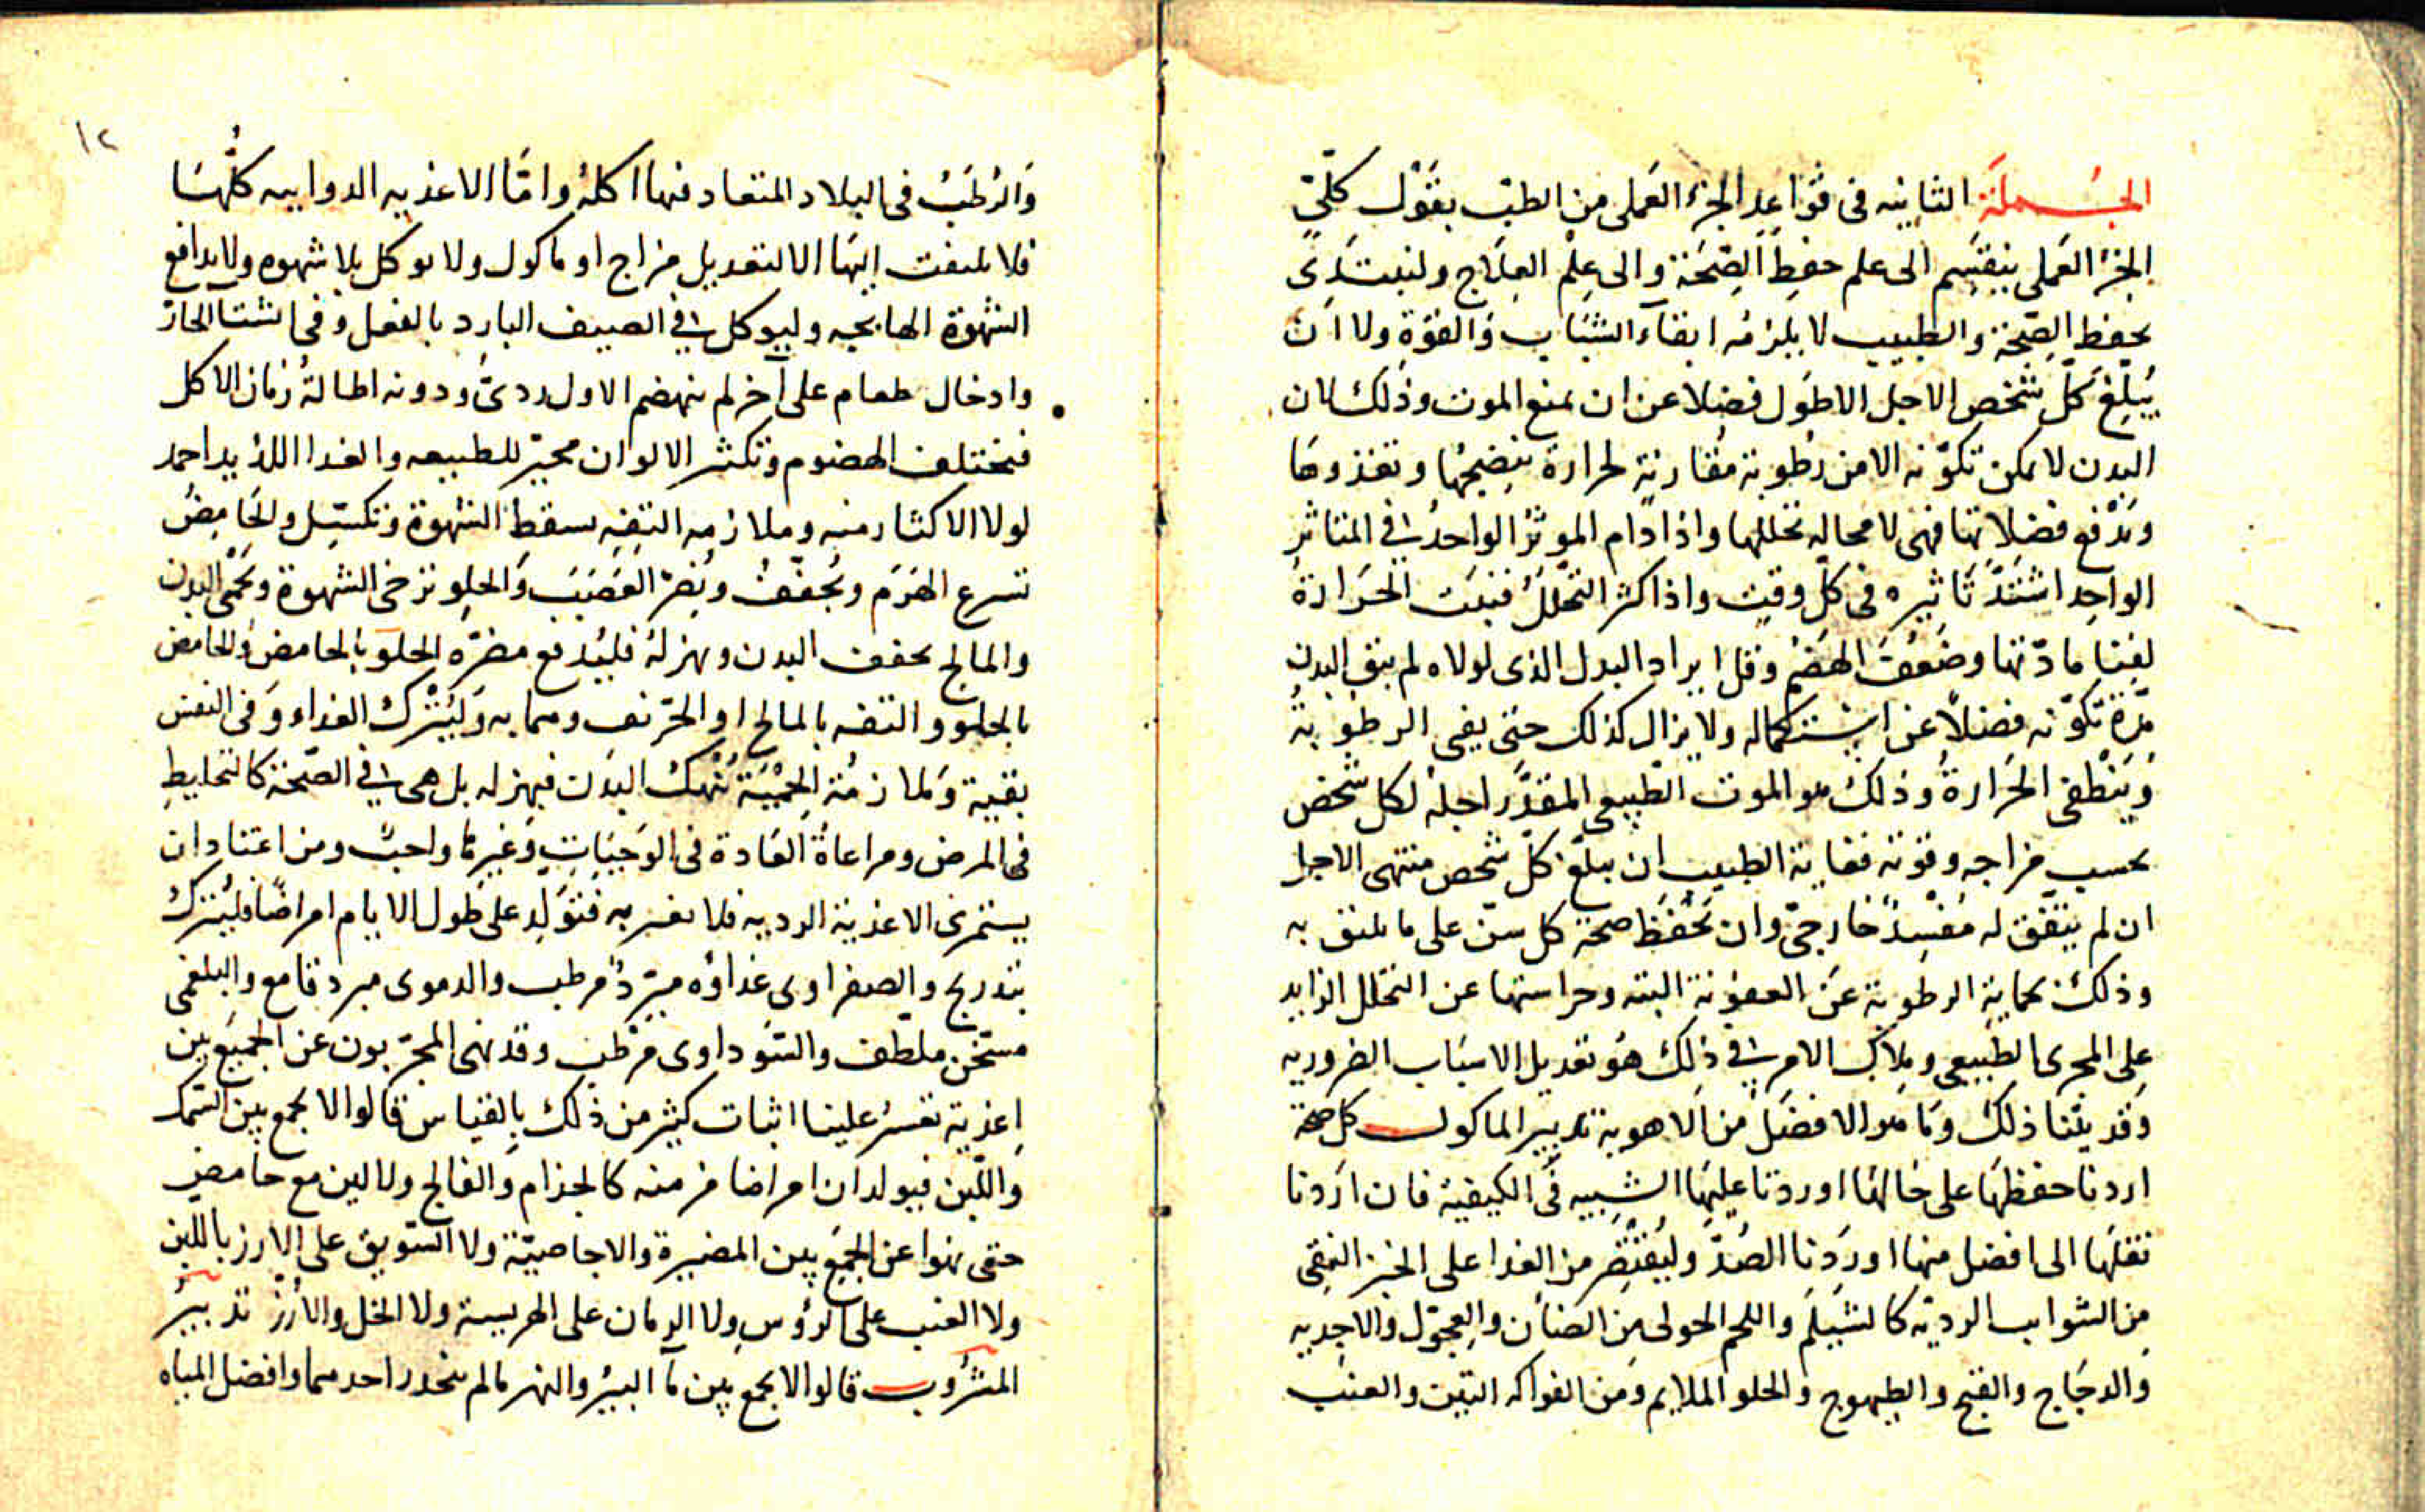 الجملة الثانيه فى قواعد الجزء العملى من الطب بقول كلّى
الجزء العملى ينقسم الى علم حفظ الصحة والى علم العلاج ولنبتدى
بحفظ الصحة والطبيب لا يلزمه ابقاء الشباب والقوة ولا ان
يبلّغ كل شخص الاجل الاطول فضلا عن ان يمنع الموت وذلك لان
البدن لا يمكن تكوّنه الا من رطوبة مقارنة لحرارة ينضجها وتغذوها
وتدفع فضلاتها فهى لا محاله تحللها واذا دام الموثر الواحد فى المتاثر
الواحد اشتدّ تاثيره فى كل وقت واذا كثر التحلل فنيت الحرارة
لفنا مادّتها وضعف الهضم وقل ايراد البدل الذى لولاه لم يبق البدن
مدّة تكوّنه فضلا عن استكماله ولا يزال كذلك حتى يفى الرطوبة
وينطفى الحرارة وذلك هو الموت الطبيعى المقدّر اجله لكل شخص
بحسب مزاجه وقوته فغاية الطبيب ان يبلّغ كل شخص منتهى الاجل
ان لم يتفق له مفسد خارجى وان يحفظ صحة كل سن على ما يليق به
وذلك بحماية الرطوبة عن العفونة البته وحراستها عن التحلل الزايد
على المجرى الطبيعى وملاك الامر فى ذلك هو تعديل الاسباب الضروريه
وقد بيّنا ذلك وما هو الافضل من الاهوية تدبير الماكول كل صحة
اردنا حفظها على حالها اوردنا عليها الشبيه فى الكيفية فان اردنا
نقلها الى افضل منها اوردنا الضدّ وليقتصر من الغدا على الخبز النقى
من الشوايب الرديه كالشيلم واللحم الحولى من الضان والعجول والاجديه
والدجاج والقبج والطيهوج والحلو الملايم ومن الفواكه التين والعنب
١٢
والرطب فى البلاد المتعاد فيها اكله وامّا الاغذيه الدواييه كلّها
فلا يلتفت اليها الا لتعديل مزاج او ماكول ولا يوكل بلا شهوه ولا يدافع
الشهوة الهايجه وليوكل فى الصيف البارد بالفعل وفى الشتا الحارّ
وادخال طعام على آخر لم ينهضم الاول ردىّ ودونه اطالة زمان الاكل
فيختلف الهضوم وتكثر الالوان محيّر للطبيعه والغدا اللذيد احمد
لولا الاكثار منه وملازمه التفه يسقط الشهوة وتكسّل والحامض
تسرع الهرم ويجفف ويضرّ العصب والحلو ترخى الشهوة ويحمى البدن
والمالح يجفف البدن ويهزله فليدفع مضرّه الحلو بالحامض والحامض
بالحلو والتفه بالمالح او الحرّيف وهما به وليترك الغداء وفى النفس
بقية وملازمة الحمية تنهك البدن فيهزله بل هى فى الصحة كالتخليط
فى المرض ومراعاة العادة فى الوجبات وغيرها واجب ومن اعتاد ان
يستمرى الاغذية الرديه فلا يغتر به فتولد على طول الايام امراضا فليترك
بتدريج والصفراوى غداؤه مبرّد مرطب والدموى مبرد قامع والبلغمى
مسخّن ملطّف والسّوداوى مرطب وقد نهى المجرّبون عن الجمع بين
اغذية تعسر علينا اثبات كثير من ذلك بالقياس قالوا لا يجمع بين السمك
واللبن فيولدان امراضا مزمنه كالجذام والفالج ولا لبن مع حامض
حتى نهوا عن الجمع بين المضيرة والاجاصيّة ولا السّويق على الارز باللبن
ولا العنب على الرؤس ولا الرمان على الهريسة ولا الخل والارز تدبير
المشروب قالوا لا يجمع بين ما البير والنهر مالم ينحدر احدهما وافضل المياه